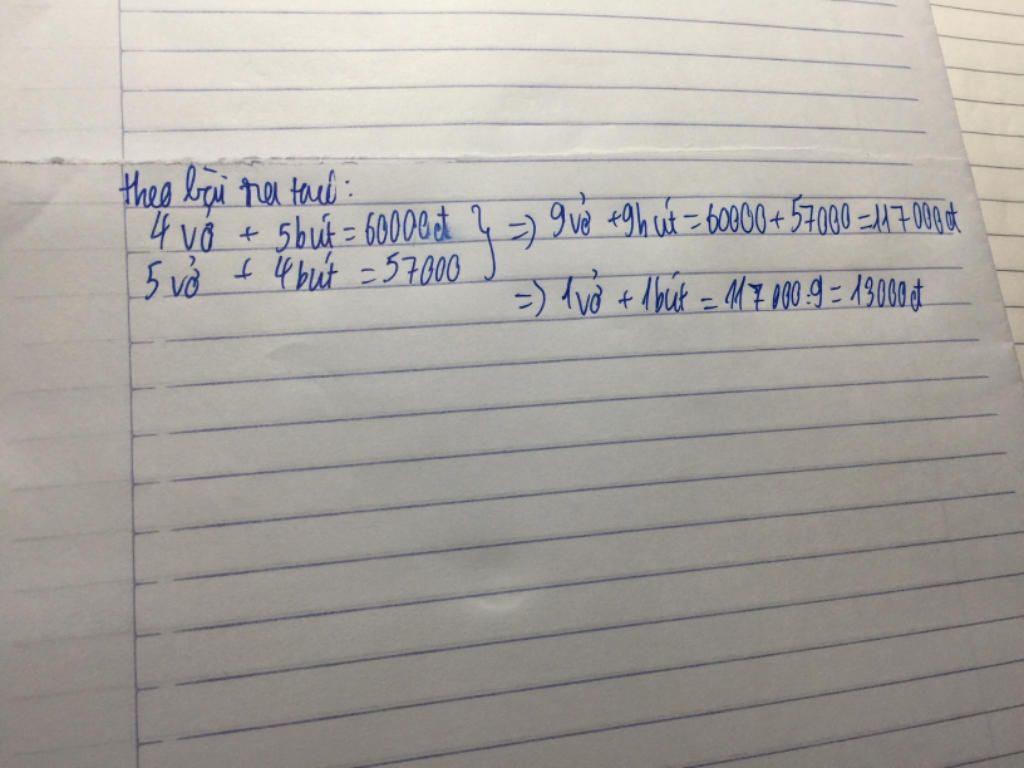 theo bài ra ta có:
4 vở + 5 bút = 60000đ } => 9 vở + 9 bút = 60000 + 57000 = 117000đ
5 vở + 4 bút = 57000
=> 1 vở + 1 bút = 117000:9 = 13000đ